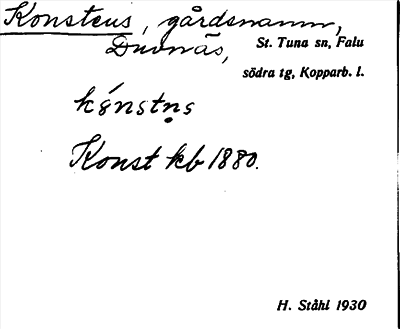 Konsteus, gårdsnamn,
Duvnäs, St. Tuna sn, Falu
södra tg, Kopparb. l.
Konst kb 1880.
H. Ståhl 1930